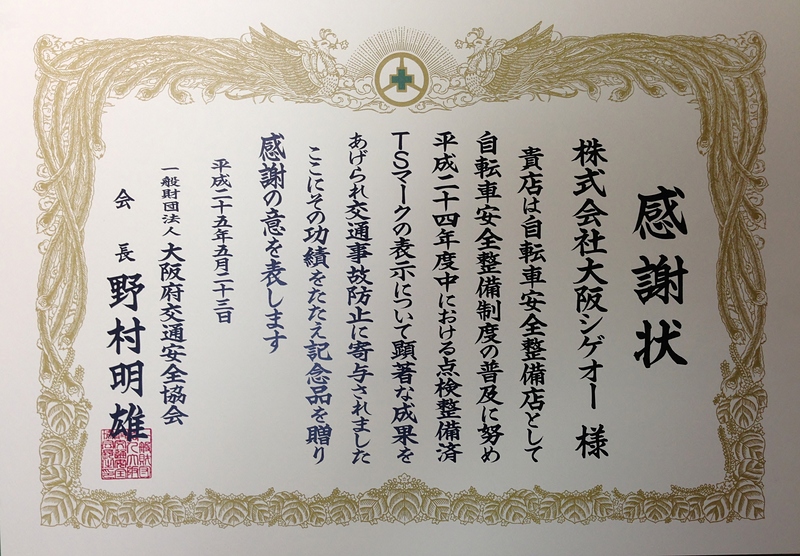 感謝状
株式会社大阪シゲオー 様
貴店は自転車安全整備店として
自転車安全整備制度の普及に努め
平成二十四年度中における点検整備済
TSマークの表示について顕著な成果を
あげられ交通事故防止に寄与されました
ここにその功績をたたえ記念品を贈り
感謝の意を表します
平成二十五年五月二十三日
一般財団法人 大阪府交通安全協会
会長 野村明雄